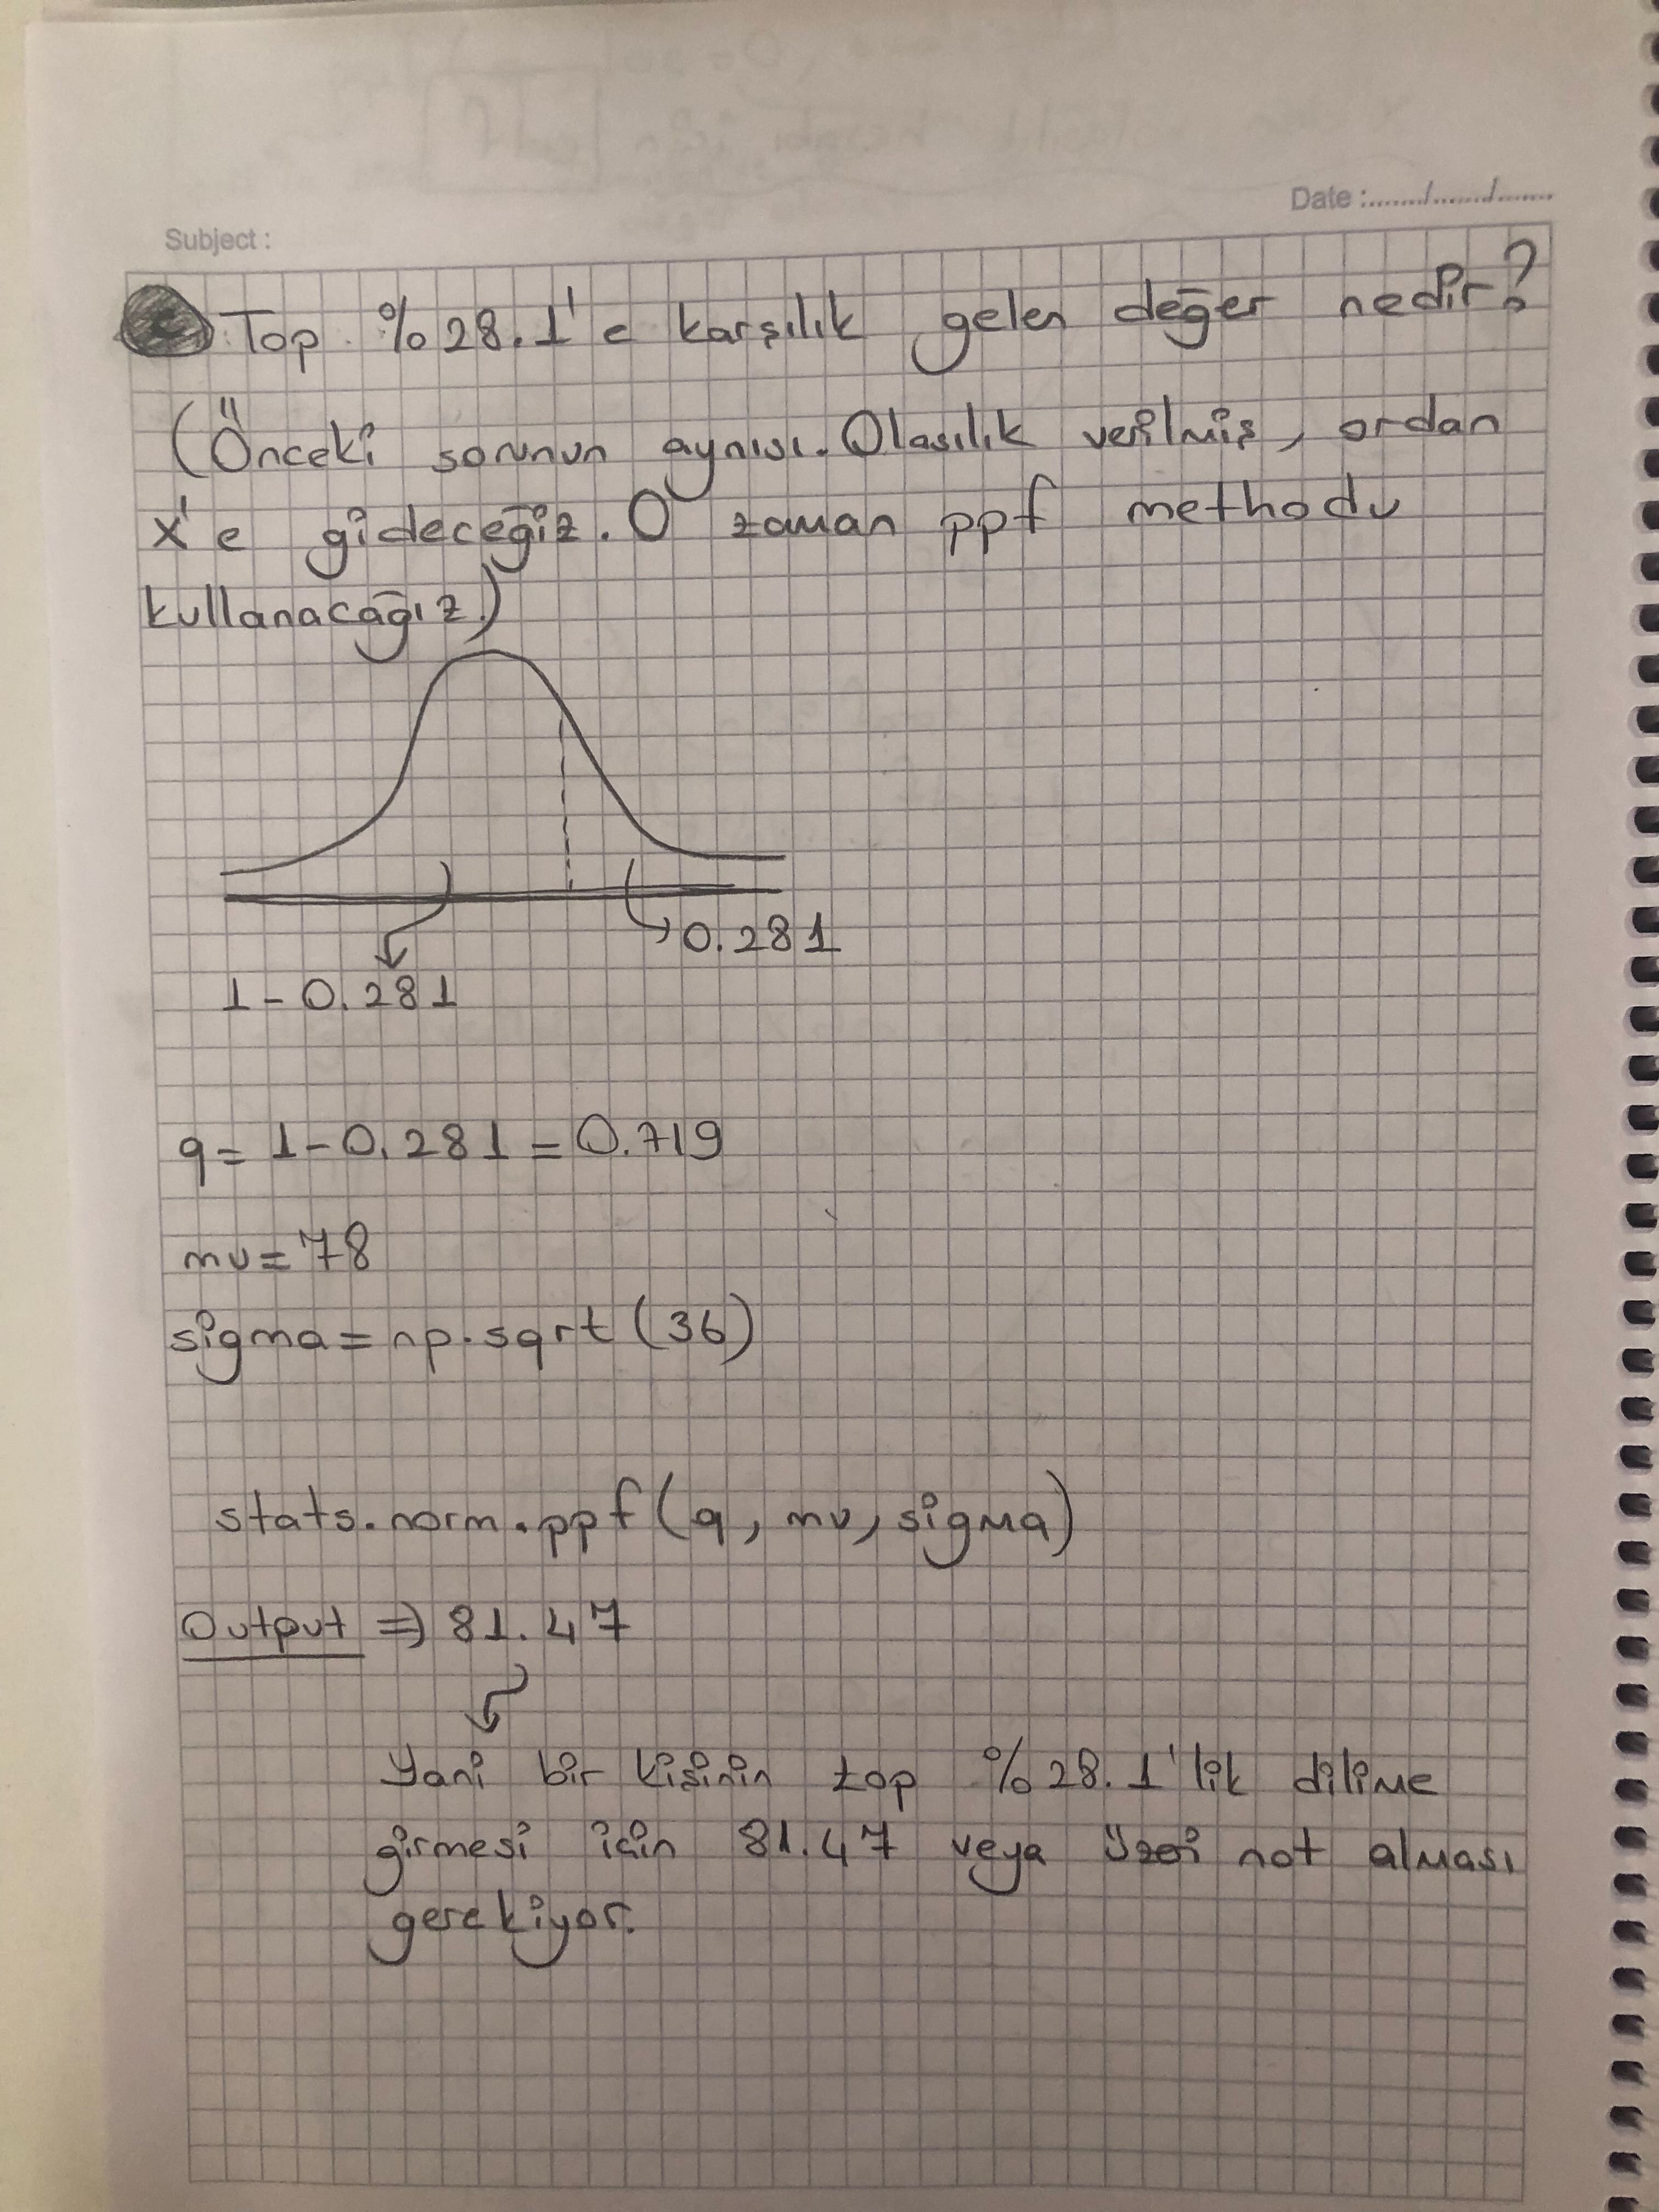 Date :......./......./.......
Subject :
Top %28.1'e karşılık gelen değer nedir?
(Önceki sorunun aynısı. Olasılık verilmiş, ordan
X'e gideceğiz. O zaman ppf methodu
kullanacağız.)
0.281
1-0.281
q = 1-0.281 = 0.719
mu = 78
sigma = np.sqrt(36)
stats.norm.ppf(q, mu, sigma)
Output => 81.47
Yani bir kişinin top %28.1'lik dilime
girmesi için 81.47 veya üzeri not alması
gerekiyor.